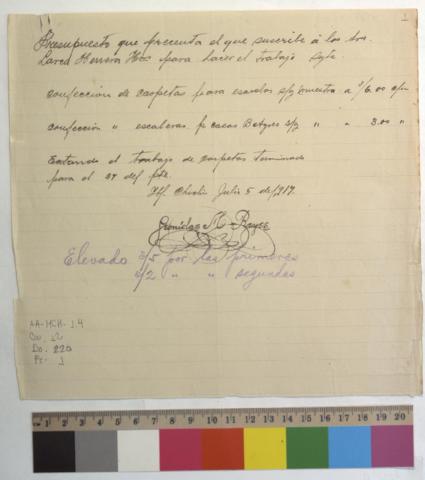 1
Presupuesto que presenta el que suscribe á los Srs.
Larco Herrera Hos para hacer el trabajo sgte.
confección de carpetas para escuelas s/g muestra a $/6.00 c/u
confección " escaleras pa casas s/g " " 3.00 "
Estando el trabajo de carpetas terminado
para el 27 del pte.
Chiclin Julio 5 de/917.
M. Reyes
Elevado $/5 por las primeras
$/2 " " segundas
AA-MCH-1.4
Ca. 12
Do. 220
Fs. 1
1 2 3 4 5 6 7 8 9 10 11 12 13 14 15 16 17 18 19 20